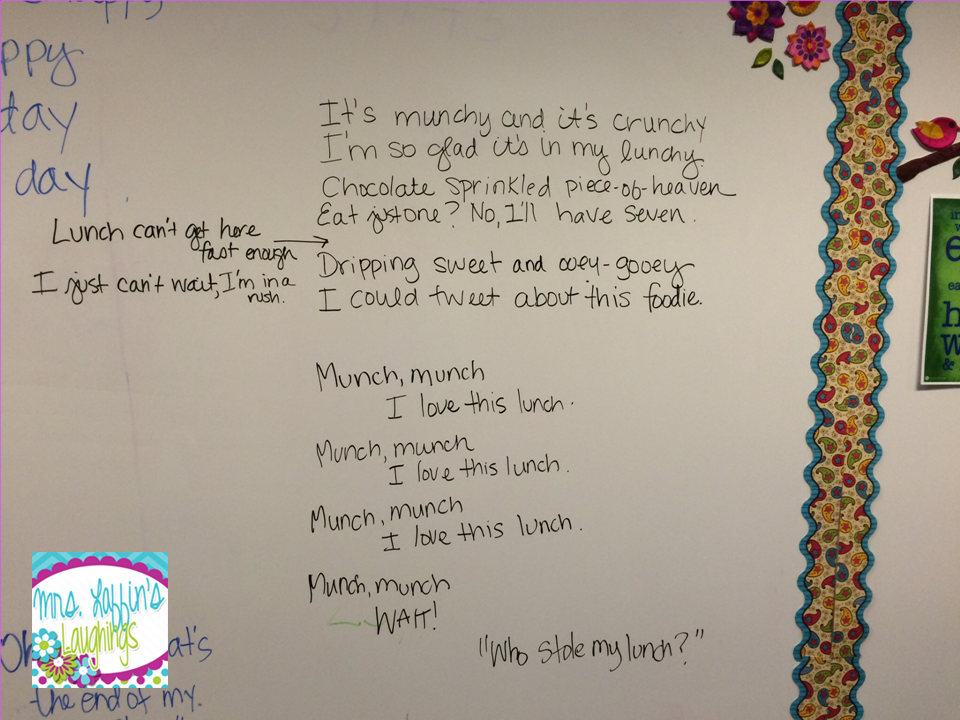 ppy
day
day
It's munchy and it's crunchy
I'm so glad it's in my lunchy.
Chocolate sprinkled piece-of-heaven
Eat just one? No, I'll have seven.
Lunch can't get here
fast enough
I just can't wait, I'm in a
rush.
Dripping sweet and ooey-gooey
I could tweet about this foodie.
Munch, munch
I love this lunch.
Munch, munch
I love this lunch.
Munch, munch
I love this lunch.
Munch, munch
WAIT!
"Who stole my lunch?"
Mrs. Laffin's
Laughings
Oh
at's
the end of my.